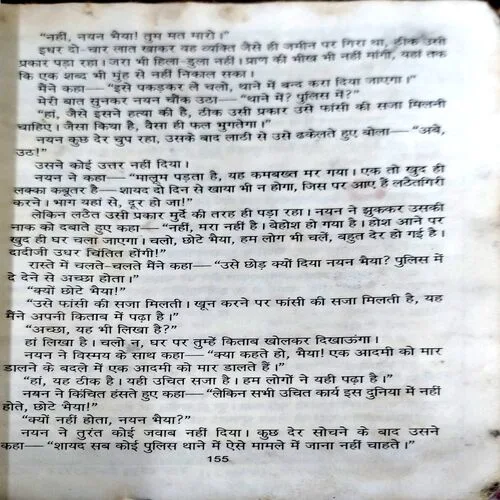 “नहीं, नयन भैया! तुम मत मारो।”
इधर दो-चार लात खाकर वह व्यक्ति जैसे ही जमीन पर गिरा था, ठीक उसी
प्रकार पड़ा रहा। जरा भी हिला-डुला नहीं। प्राण की भीख भी नहीं मांगी, यहां तक
कि एक शब्द भी मुंह से नहीं निकाल सका।
मैंने कहा— “इसे पकड़कर ले चलो, थाने में बन्द करा दिया जाएगा।”
मेरी बात सुनकर नयन चौंक उठा— “थाने में? पुलिस में?”
“हां, जैसे इसने हत्या की है, ठीक उसी प्रकार उसे फांसी की सजा मिलनी
चाहिए। जैसा किया है, वैसा ही फल भुगतेगा।”
नयन कुछ देर चुप रहा, उसके बाद लाठी से उसे ढकेलते हुए बोला— “अबे,
उठ!”
उसने कोई उत्तर नहीं दिया।
नयन ने कहा— “मालूम पड़ता है, यह कमबख्त मर गया। एक तो खुद ही
लक्का कबूतर है— शायद दो दिन से खाया भी न होगा, जिस पर आए हैं लठैतगिरी
करने। भाग यहां से, दूर हो जा!”
लेकिन लठैत उसी प्रकार मुर्दे की तरह ही पड़ा रहा। नयन ने झुककर उसकी
नाक को दबाते हुए कहा— “नहीं, मरा नहीं है। बेहोश हो गया है। होश आने पर
खुद ही घर चला जाएगा। चलो, छोटे भैया, हम लोग भी चलें, बहुत देर हो गई है।
दादीजी उधर चिंतित होंगी!”
रास्ते में चलते-चलते मैंने कहा— “उसे छोड़ क्यों दिया नयन भैया? पुलिस में
दे देने से अच्छा होता।”
“क्यों छोटे भैया!”
“उसे फांसी की सजा मिलती। खून करने पर फांसी की सजा मिलती है, यह
मैंने अपनी किताब में पढ़ा है।”
“अच्छा, यह भी लिखा है?”
हां लिखा है। चलो न, घर पर तुम्हें किताब खोलकर दिखाऊंगा।
नयन ने विस्मय के साथ कहा— “क्या कहते हो, भैया! एक आदमी को मार
डालने के बदले में एक आदमी को मार डालते हैं।”
“हां, यह ठीक है। यही उचित सजा है। हम लोगों ने यही पढ़ा है।”
नयन ने किंचित हंसते हुए कहा— “लेकिन सभी उचित कार्य इस दुनिया में नहीं
होते, छोटे भैया!”
“क्यों नहीं होता, नयन भैया?”
नयन ने तुरंत कोई जवाब नहीं दिया। कुछ देर सोचने के बाद उसने
कहा— “शायद सब कोई पुलिस थाने में ऐसे मामले में जाना नहीं चाहते।”
155